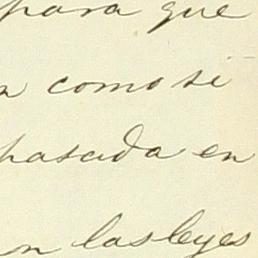 para que
como si
pasada en
las leyes